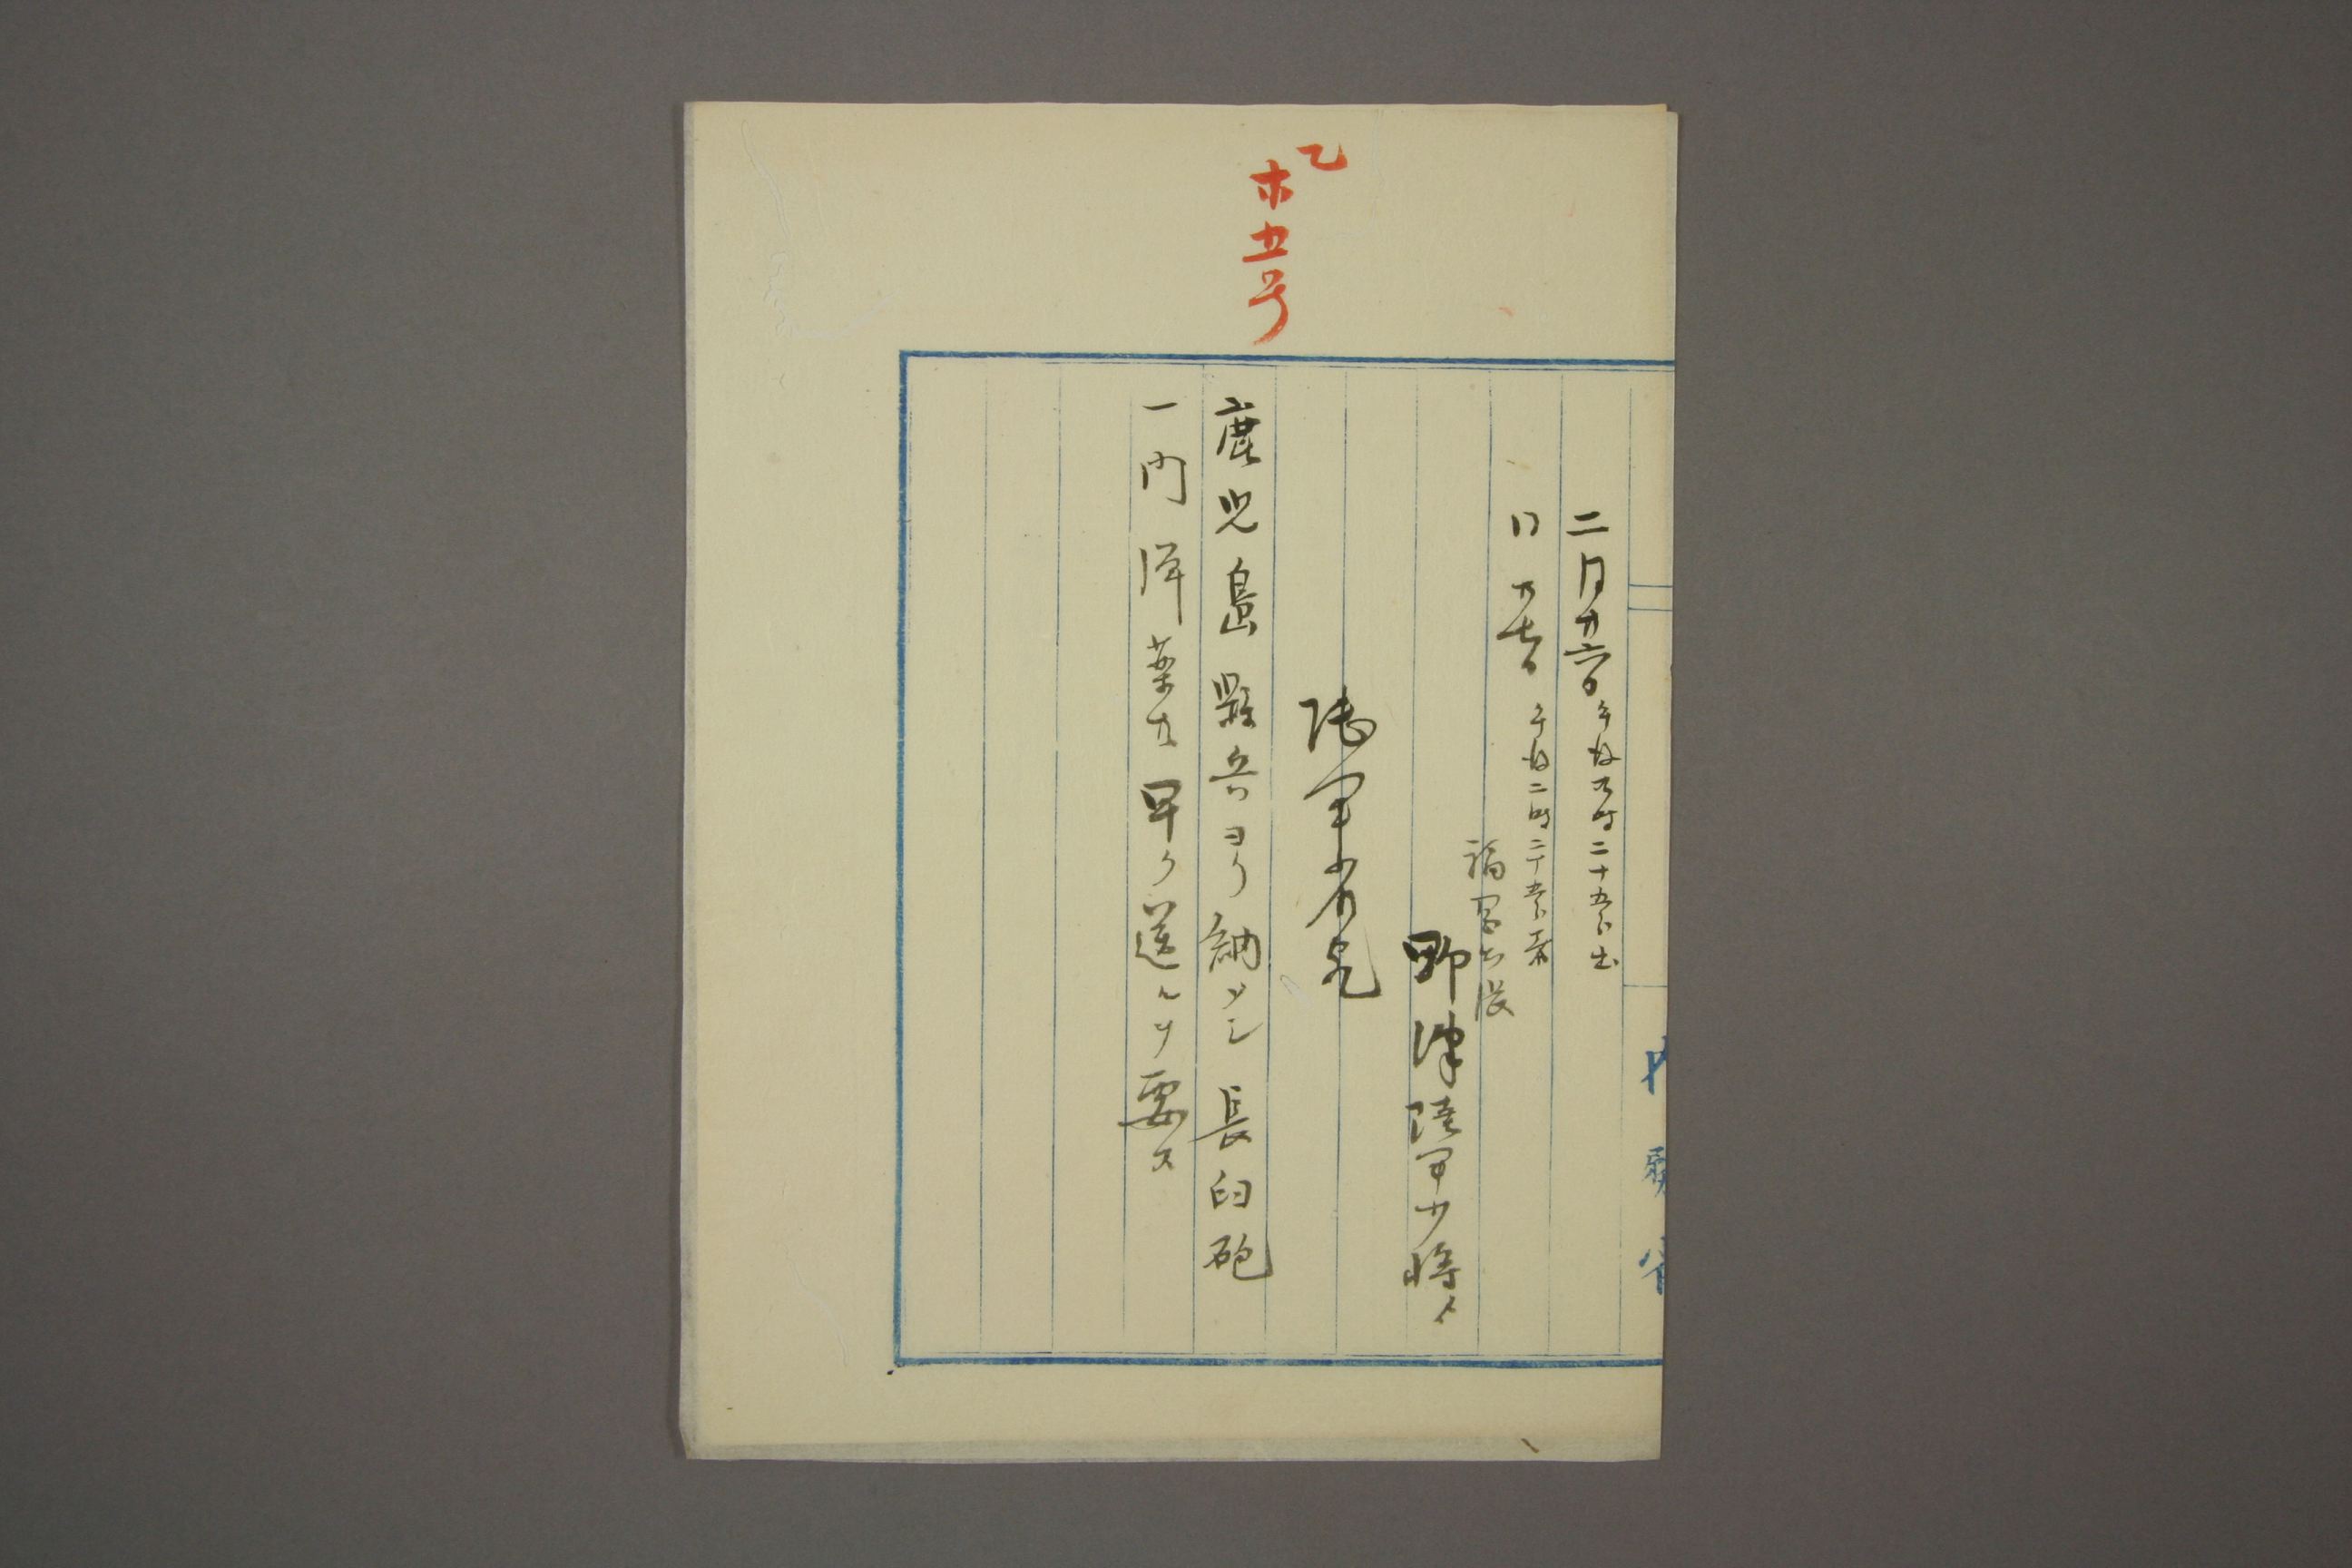 乙
第五号
二月廿六日午后九時二十五分出
同 廿七日午后二時二十五分着
福岡出張
野津陸軍少将
陸軍省宛
鹿児島縣兵ヨリ納メシ長臼砲
一門弾薬共早ク送ルヲ要ス
内務省